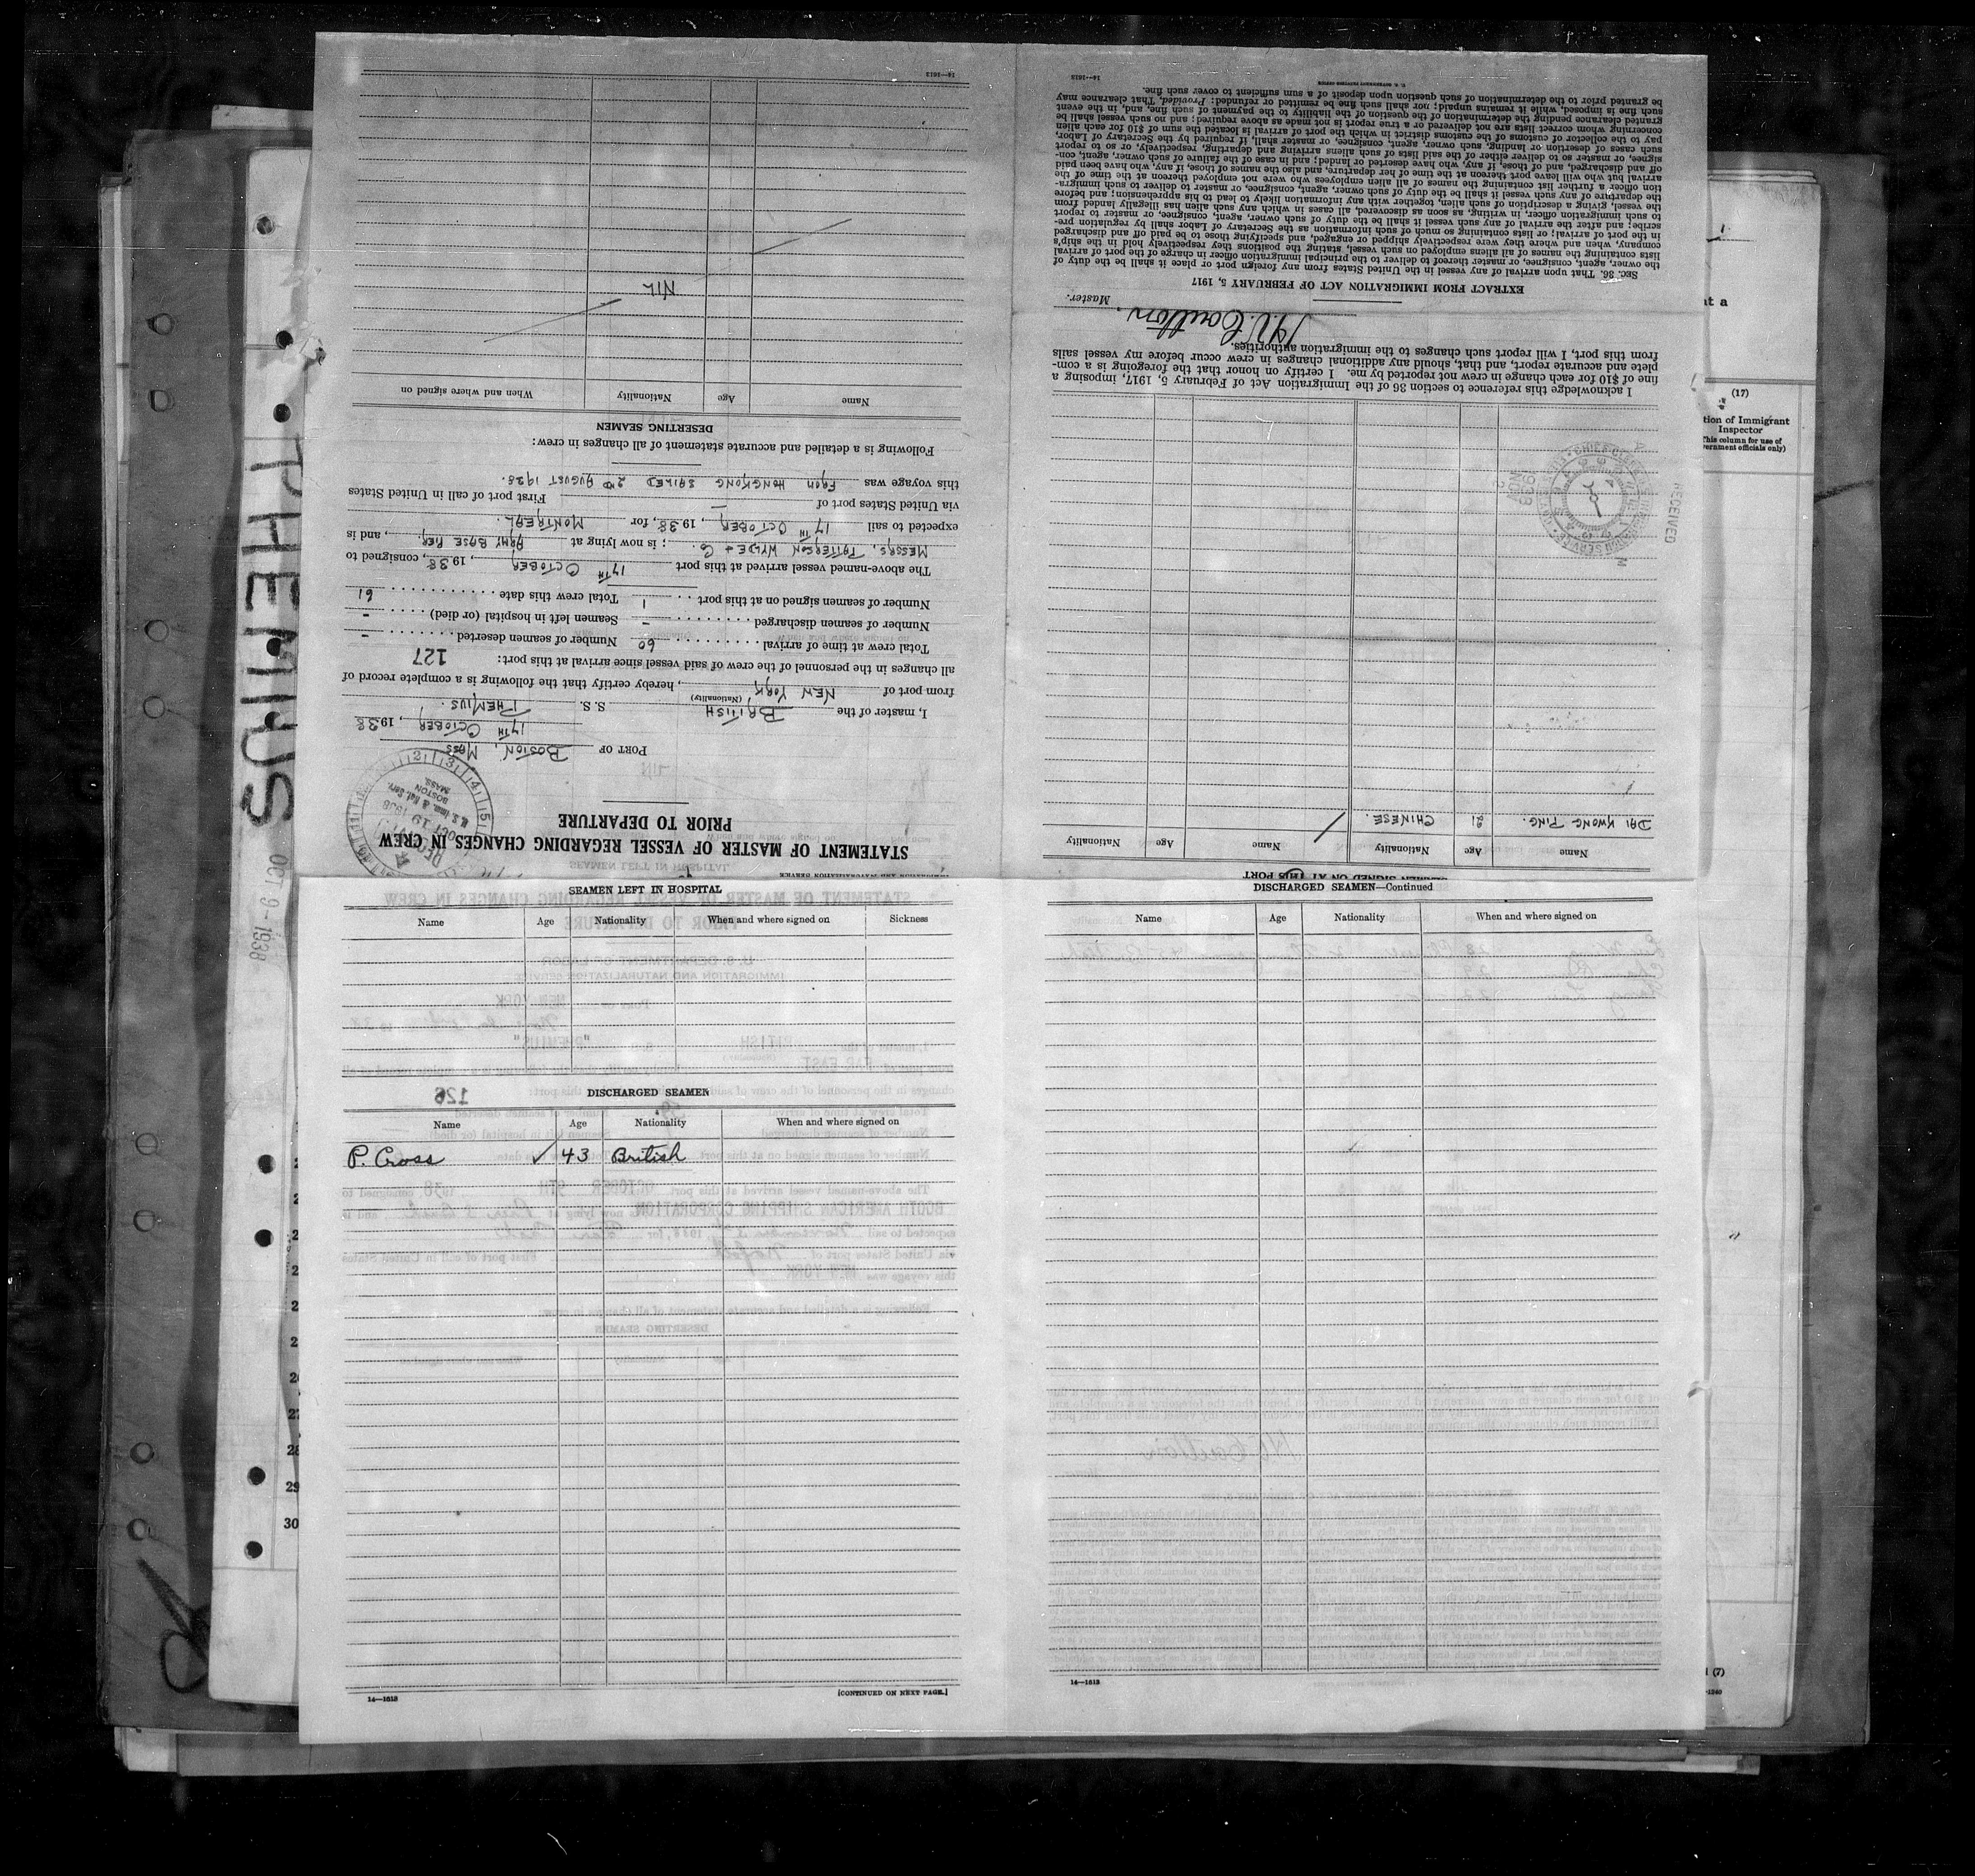 PHEMIUS
OCT 9-1938
STATEMENT OF MASTER OF VESSEL REGARDING CHANGES IN CREW
PRIOR TO DEPARTURE
PORT OF BOSTON, MASS
17TH OCTOBER, 1938
I, master of the BRITISH S. S. PHEMIUS.
(Nationality)
from port of NEW YORK, hereby certify that the following is a complete record of
all changes in the personnel of the crew of said vessel since arrival at this port: 127
Total crew at time of arrival 60 Number of seamen deserted –
Number of seamen discharged – Seamen left in hospital (or died) –
Number of seamen signed on at this port 1 Total crew this date 61
The above-named vessel arrived at this port 17TH OCTOBER, 1938, consigned to
MESSRS, PATTERSON WYLDE & Co.; is now lying at ARMY BASE PIER, and is
expected to sail 17TH OCTOBER, 1938, for MONTREAL.
via United States port of – First port of call in United States
this voyage was FROM HONGKONG SAILED 2ND AUGUST 1938.
Following is a detailed and accurate statement of all changes in crew:
DESERTING SEAMEN
Name Age Nationality When and where signed on
NIL
14—1613
SEAMEN SIGNED ON AT THIS PORT
Name Age Nationality Name Age Nationality
DAI KWONG PING. 21 CHINESE.
RECEIVED
NOV 2 1938
I acknowledge this reference to section 36 of the Immigration Act of February 5, 1917, imposing a
fine of $10 for each change in crew not reported by me. I certify on honor that the foregoing is a com-
plete and accurate report, and that, should any additional changes in crew occur before my vessel sails
from this port, I will report such changes to the immigration authorities.
Master.
EXTRACT FROM IMMIGRATION ACT OF FEBRUARY 5, 1917
SEC. 36. That upon arrival of any vessel in the United States from any foreign port or place it shall be the duty of
the owner, agent, consignee, or master thereof to deliver to the principal immigration officer in charge of the port of arrival
lists containing the names of all aliens employed on such vessel, stating the positions they respectively hold in the ship's
company, when and where they were respectively shipped or engaged, and specifying those to be paid off and discharged
in the port of arrival; or lists containing so much of such information as the Secretary of Labor shall by regulation pre-
scribe; and after the arrival of any such vessel it shall be the duty of such owner, agent, consignee, or master to report
to such immigration officer, in writing, as soon as discovered, all cases in which any such alien has illegally landed from
the vessel, giving a description of such alien, together with any information likely to lead to his apprehension; and before
the departure of any such vessel it shall be the duty of such owner, agent, consignee, or master to deliver to such immigra-
tion officer a further list containing the names of all alien employees who were not employed thereon at the time of the
arrival but who will leave port thereon at the time of her departure, and also the names of those, if any, who have been paid
off and discharged, and of those, if any, who have deserted or landed; and in case of the failure of such owner, agent, con-
signee, or master so to deliver either of the said lists of such aliens arriving and departing, respectively, or so to report
such cases of desertion or landing, such owner, agent, consignee, or master shall, if required by the Secretary of Labor,
pay to the collector of customs of the customs district in which the port of arrival is located the sum of $10 for each alien
concerning whom correct lists are not delivered or a true report is not made as above required; and no such vessel shall be
granted clearance pending the determination of the question of the liability to the payment of such fine, and, in the event
such fine is imposed, while it remains unpaid; nor shall such fine be remitted or refunded: Provided, That clearance may
be granted prior to the determination of such question upon deposit of a sum sufficient to cover such fine.
14—1613
SEAMEN LEFT IN HOSPITAL
Name Age Nationality When and where signed on Sickness
126
DISCHARGED SEAMEN
Name Age Nationality When and where signed on
P. Cross ✓ 43 British
14—1613
[CONTINUED ON NEXT PAGE.]
DISCHARGED SEAMEN—Continued
Name Age Nationality When and where signed on
14—1613
28
29
30
(17)
Inspector